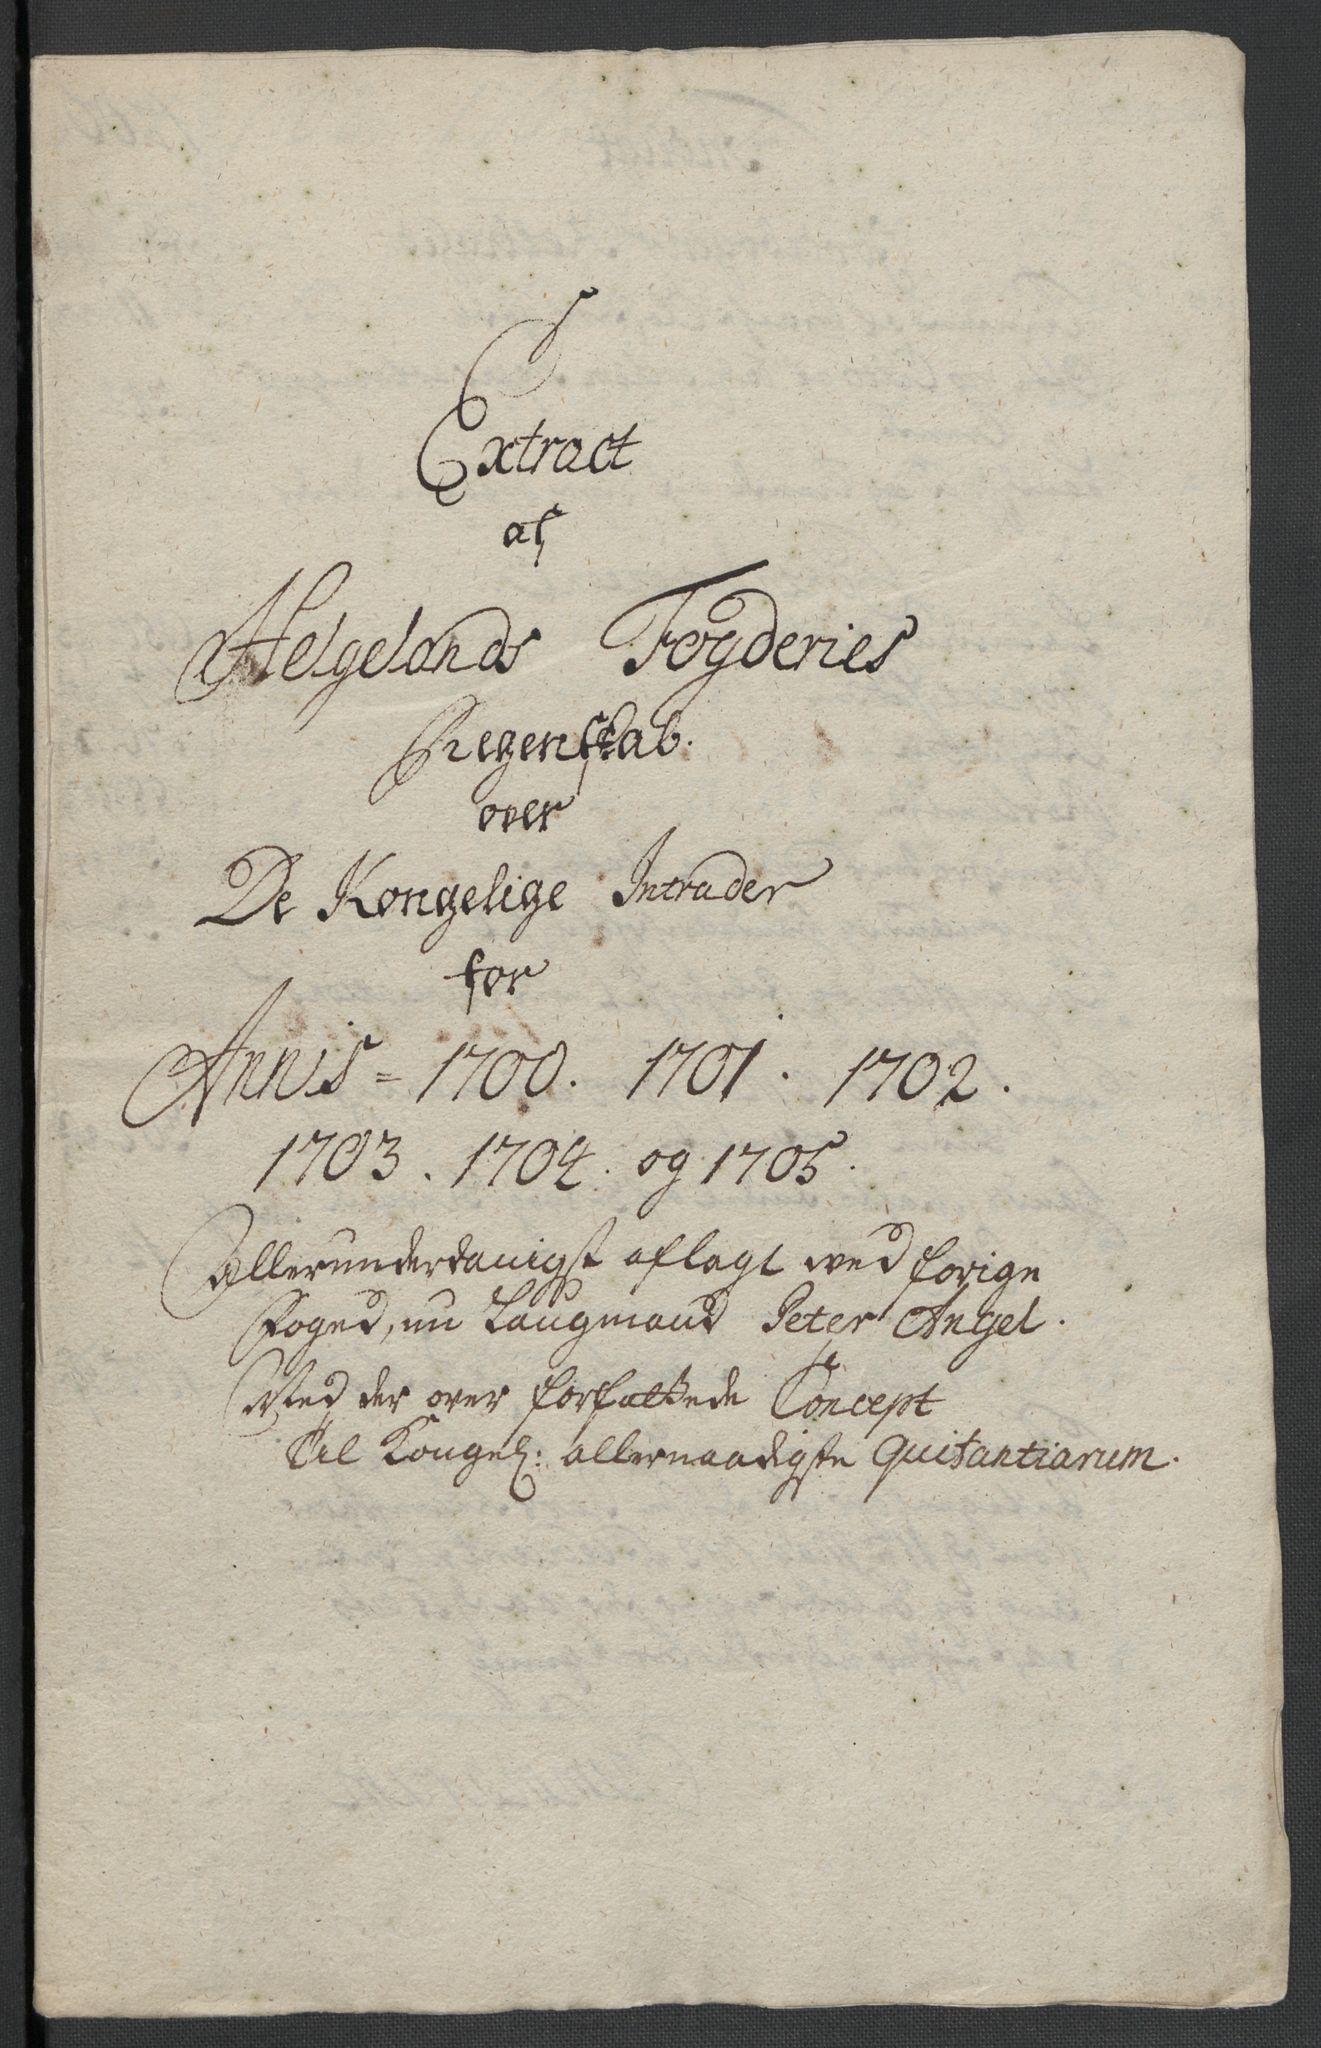 Extract
af
Helgelands Fogderies
Regenskab.
over
De Kongelige Intrader
for
Annis = 1700. 1701. 1702.
1703. 1704. og 1705.
Allerunderdanigst aflagt ved forige
Foged, nu Laugmand Peter Angel.
Med der over forfattede Concept
Til Kongel: allernaadigste Quitantiarum.